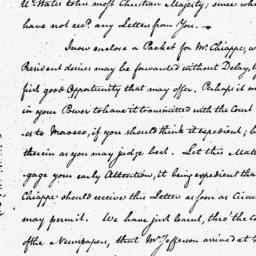 States to his most Christian Majesty; since wh
have not recd. any Letters from You.—
I now enclose a Packet for Mr. Chiappe, w
President desires may be forwarded without Delay, b
first good Opportunity that may offer. Perhaps it m
in your Power to have it transmitted with the Court
-er to Morocco, if you should think it expedient;
therein as you may judge best. Let this Matte
-gage your early Attention, it being expedient tha
Chiappe should receive this Letter as soon as Circu
may permit. We have just learnt, thro' the C
of the Newspapers, that Mr. Jefferson arrived at